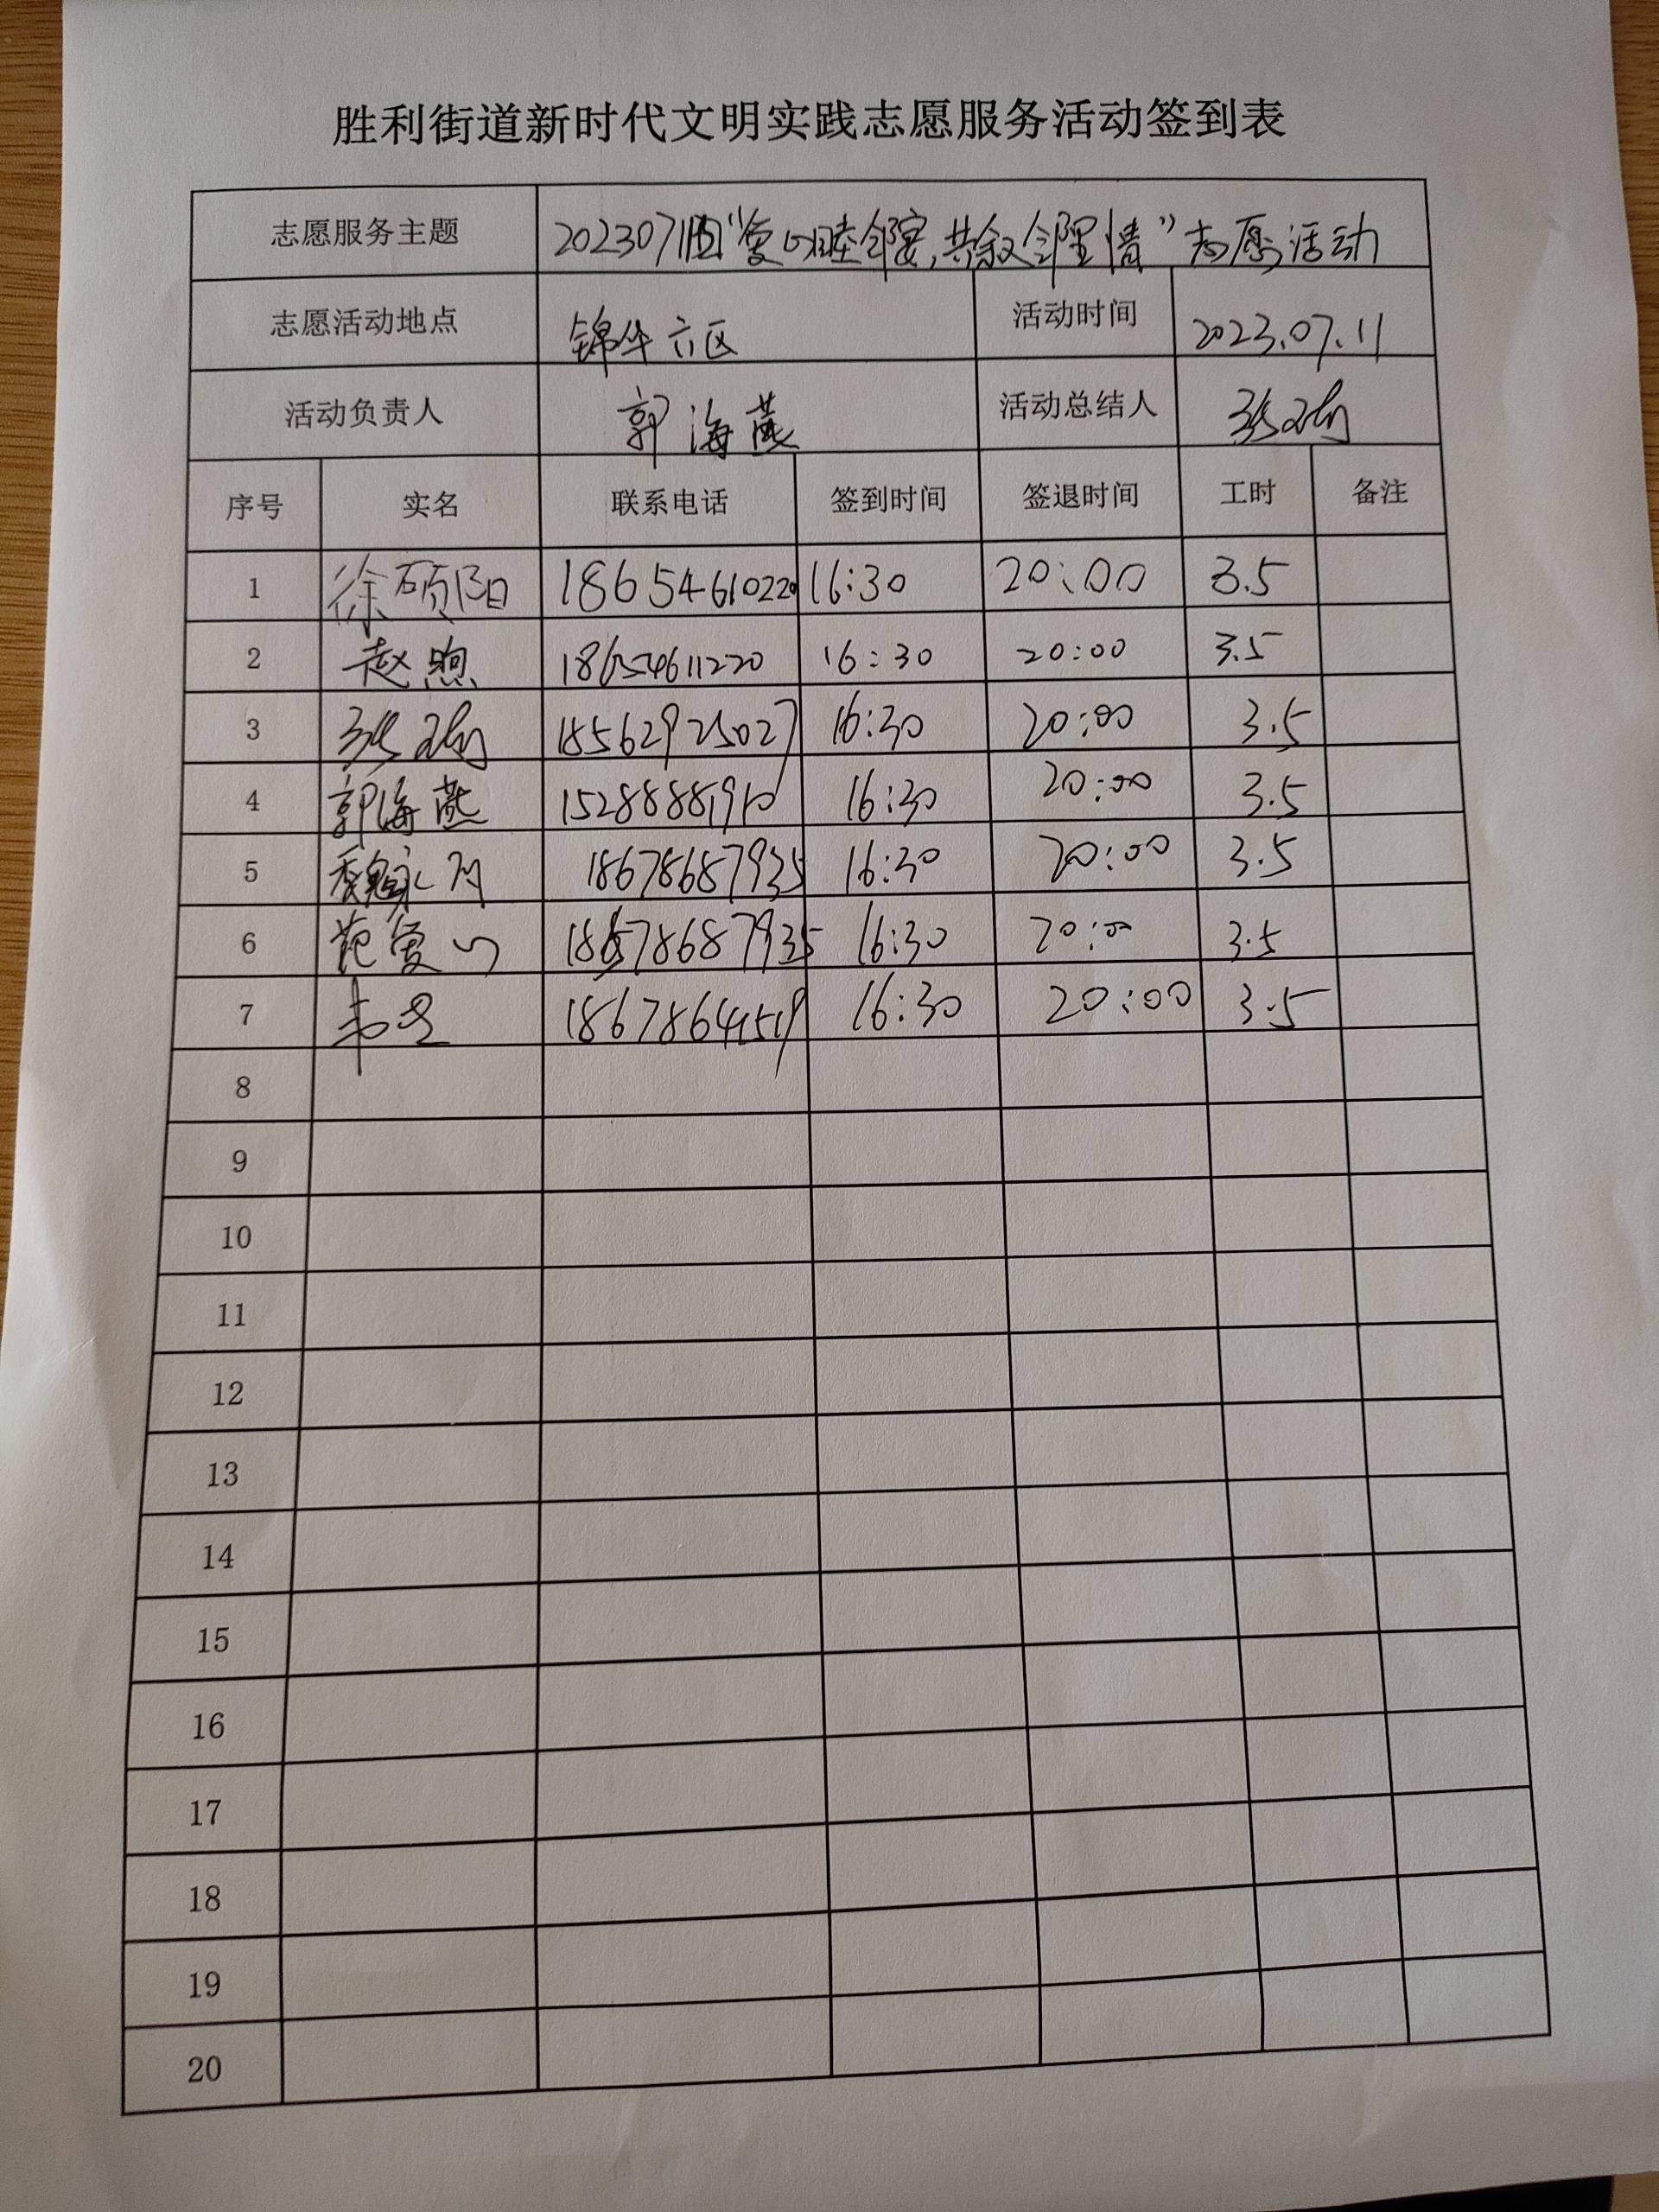 胜利街道新时代文明实践志愿服务活动签到表
志愿服务主题 20230711 睦邻宴,共叙邻里情”志愿活动
志愿活动地点 锦华六区 活动时间 2023.07.11
活动负责人 郭海燕 活动总结人
序号 实名 联系电话 签到时间 签退时间 工时 备注
1 徐硕阳 18654610220 16:30 20:00 3.5
2 赵煦 18654611220 16:30 20:00 3.5
3 18562925027 16:30 20:00 3.5
4 郭海燕 15288881910 16:30 20:00 3.5
5 18678687935 16:30 20:00 3.5
6 18678687935 16:30 20:00 3.5
7 16:30 20:00 3.5
8
9
10
11
12
13
14
15
16
17
18
19
20